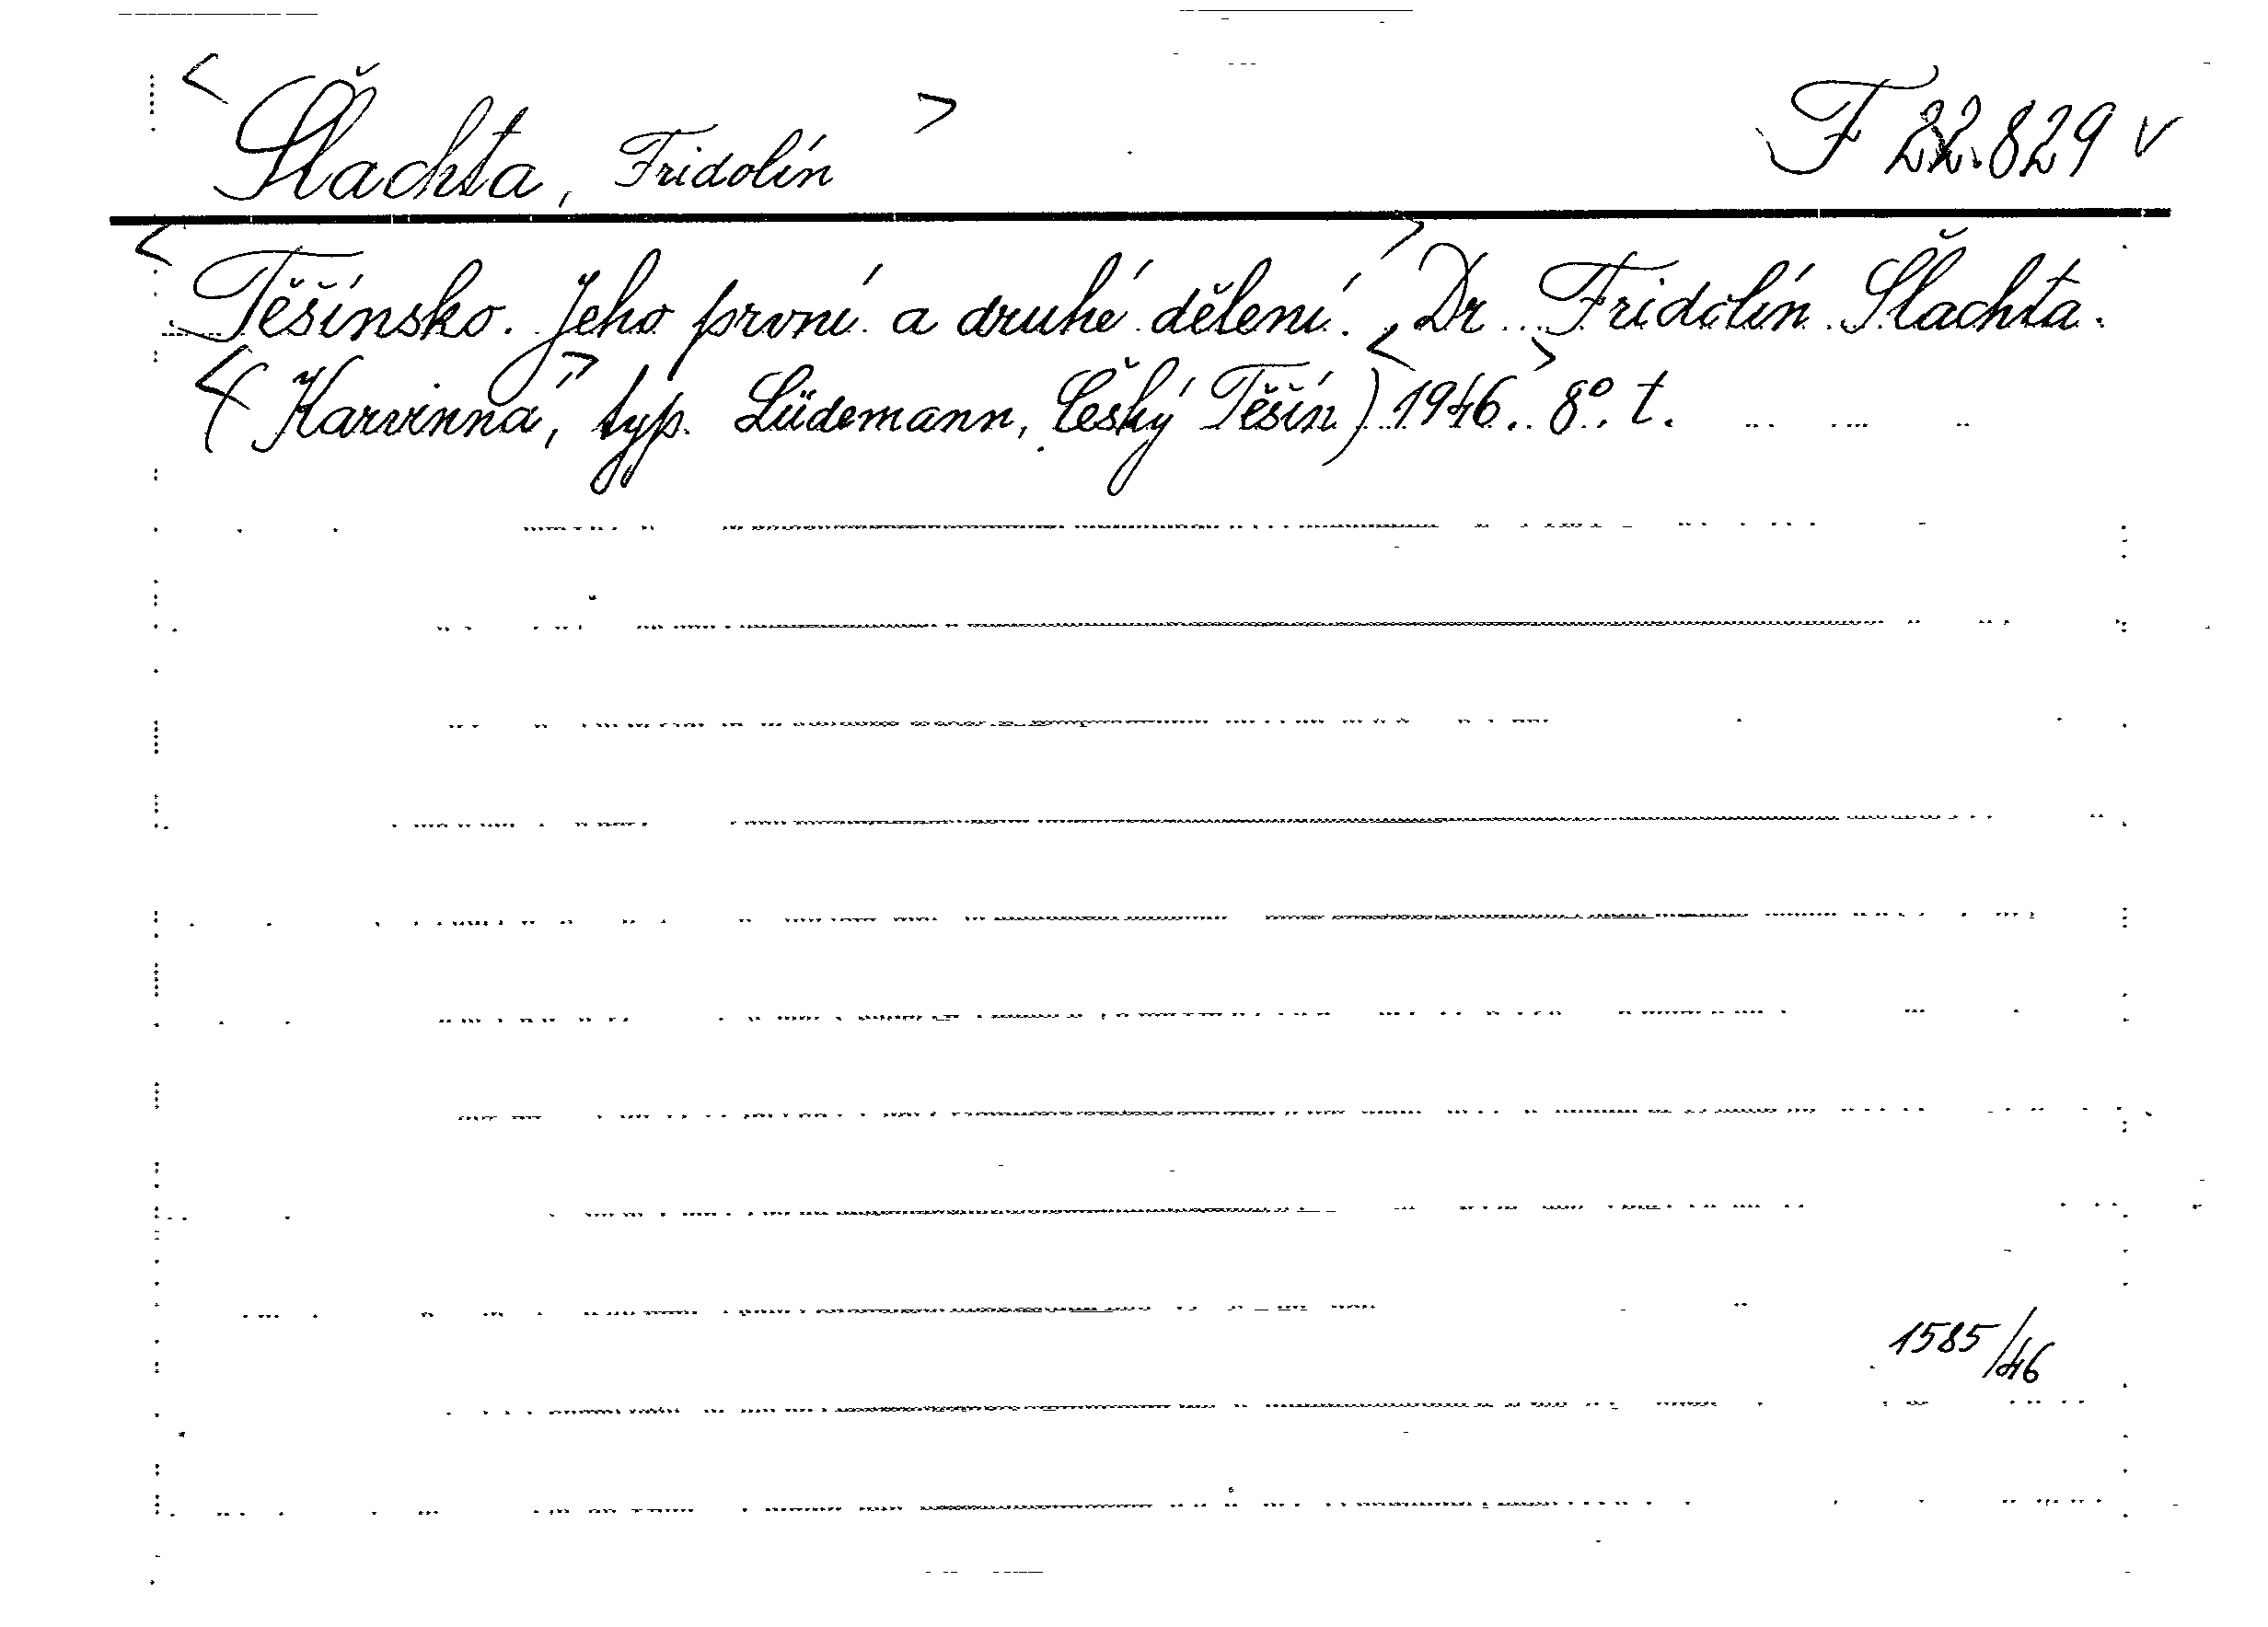 <Šlachta, Fridolín> F 22.829 v
<Těšínsko. Jeho první a druhé dělení.> Dr. Fridolín Šlachta.
<(Karvinná,> typ. Lüdemann, Český Těšín) <1946.> 8°. t.
1585/46